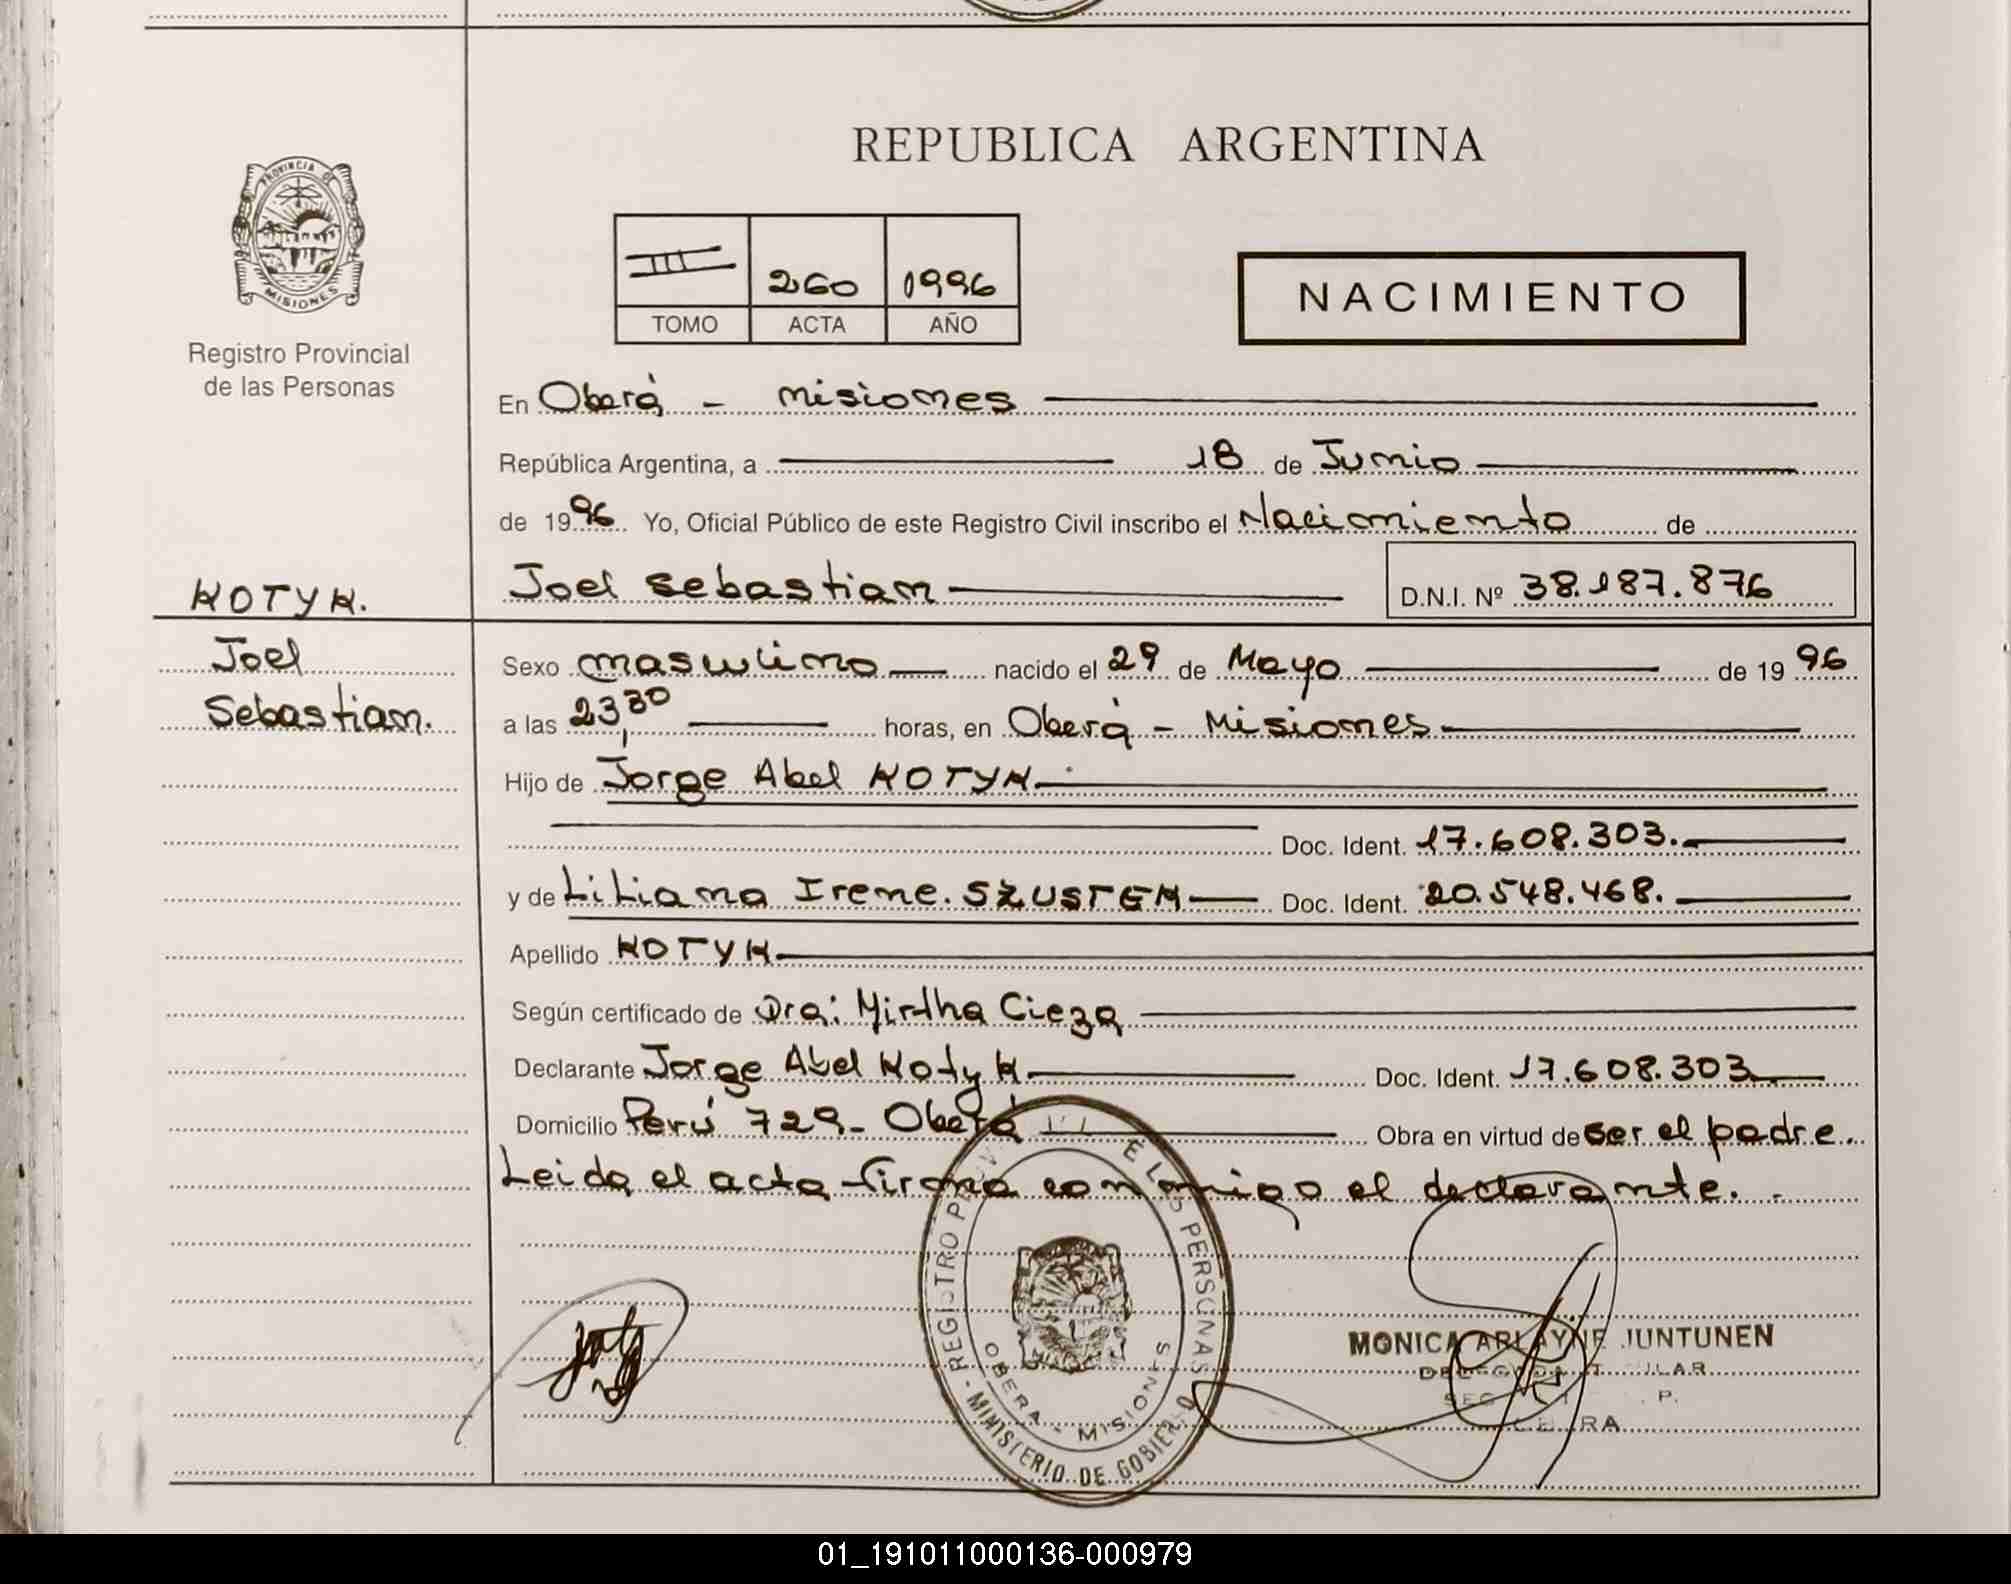 REPUBLICA ARGENTINA
PROVINCIA DE
MISIONES
Registro Provincial
de las Personas
III 260 1996
TOMO ACTA AÑO
NACIMIENTO
En Oberá - Misiones
República Argentina, a 18 de Junio
de 1996 Yo, Oficial Público de este Registro Civil inscribo el Nacimiento de
KOTYK. Joel Sebastian D.N.I. Nº 38.187.876
Joel
Sebastian.
Sexo masculino nacido el 29 de Mayo de 1996
a las 23,30 horas, en Oberá - Misiones
Hijo de Jorge Abel KOTYK
Doc. Ident. 17.608.303.
y de Liliana Irene. SZUSTEK Doc. Ident. 20.548.468.
Apellido KOTYK
Según certificado de Dra: Mirtha Cieza
Declarante Jorge Abel Kotyk Doc. Ident. 17.608.303
Domicilio Perú 729- Oberá Obra en virtud de ser el padre.
Leida el acta firma conmigo el declarante.
REGISTRO DE LAS PERSONAS
OBERA - MISIONES
MINISTERIO DE GOBIERNO
MONICA ARLAYNE JUNTUNEN
01_191011000136-000979